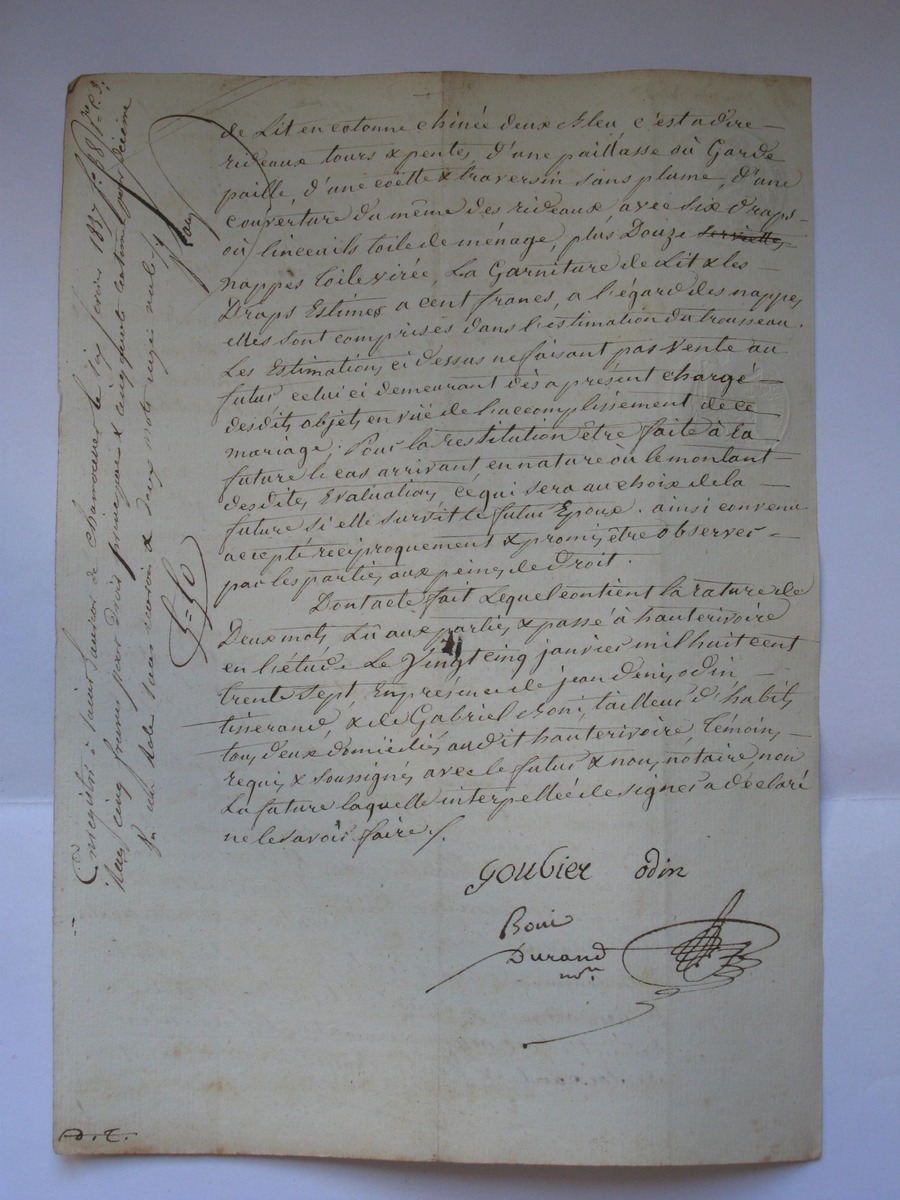 de Lit en cotonne chinée deux bleu c'est a dire
rideaux tours & pentes, d'une paillasse où Garde
paille, d'une coëtte & traversin sans plume, d'une
couverture du même des rideaux, avec six draps
où linceuils toile de ménage, plus Douze serviettes
nappes toile virée, La Garniture de Lit & les
Draps Estimés a cent francs, a l'égard des nappes
elles sont comprises dans l'estimation du trousseau.
Les Estimations ci dessus ne faisant pas Vente au
futur celui ci demeurant dès aprésent chargé
desdits objets en vüe de l'accomplissement de ce
mariage; Pour la restitution être faite à la
future le cas arrivant en nature où le montant
desdites Evaluations, ce qui sera au choix de la
future si elle survit le futur Epoux. ainsi convenu
accepté réciproquement & promis être observer
par les parties aux peines de Droit.
Dont acte fait Lequel contient la rature de
Deux mots Lû aux parties & passé à hauterivoire
en l'étude Le Vingt cinq janvier mil huit cent
trente sept, En présence de jean denis odin
tisserand, & de Gabriel Boni, tailleur d'habits
tous deux domiciliés audit hauterivoire, témoins
requis & soussignés avec le futur & nous notaire, non
La future laquelle interpellée de signer a déclaré
ne le savoir faire /.
Goubier odin
Boni
Durand
nre
Enregistré à Saint Laurent de Chamousset le
1837 fo 81
cinq francs pour droit principal &
centimes pour Décime
deux mots rayés nuls
D. T.